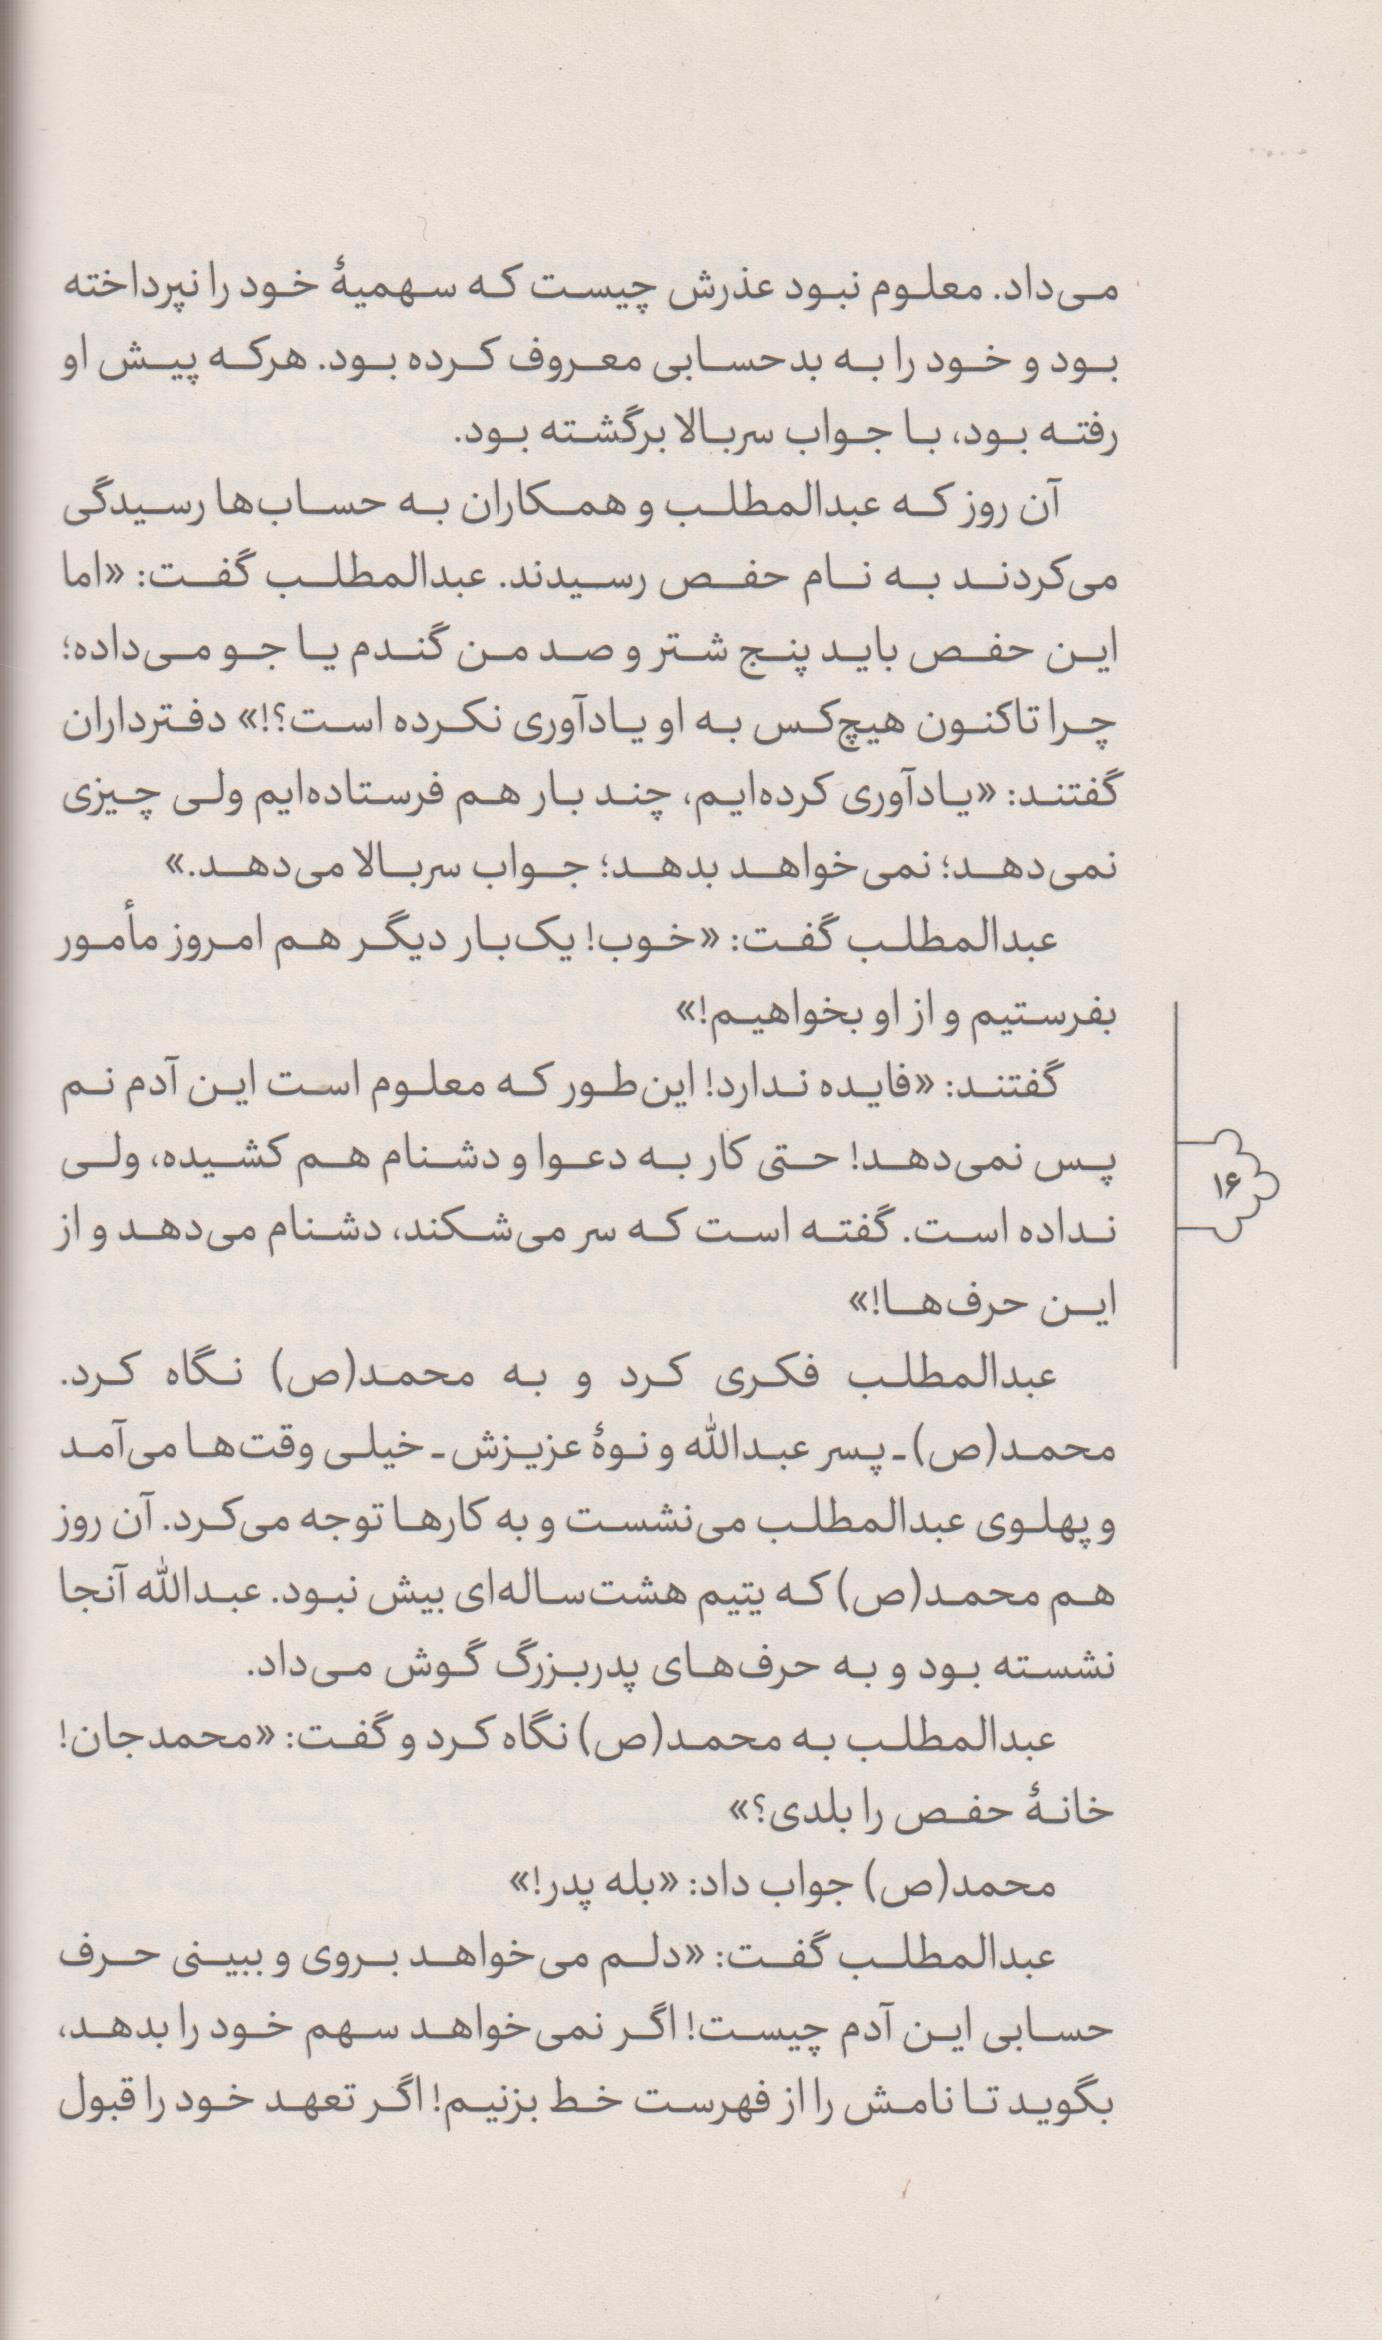 می‌داد. معلوم نبود عذرش چیست که سهمیهٔ خود را نپرداخته
بود و خود را به بدحسابی معروف کرده بود. هرکه پیش او
رفته بود، با جواب سربالا برگشته بود.
آن روز که عبدالمطلب و همکاران به حساب‌ها رسیدگی
می‌کردند به نام حفص رسیدند. عبدالمطلب گفت: «اما
این حفص باید پنج شتر و صد من گندم یا جو می‌داده؛
چرا تاکنون هیچ‌کس به او یادآوری نکرده است؟!» دفترداران
گفتند: «یادآوری کرده‌ایم، چند بار هم فرستاده‌ایم ولی چیزی
نمی‌دهد؛ نمی‌خواهد بدهد؛ جواب سربالا می‌دهد.»
عبدالمطلب گفت: «خوب! یک‌بار دیگر هم امروز مأمور
بفرستیم و از او بخواهیم!»
گفتند: «فایده ندارد! این‌طور که معلوم است این آدم نم
پس نمی‌دهد! حتی کار به دعوا و دشنام هم کشیده، ولی
نداده است. گفته است که سر می‌شکند، دشنام می‌دهد و از
این حرف‌ها!»
عبدالمطلب فکری کرد و به محمد(ص) نگاه کرد.
محمد(ص) ـ پسر عبدالله و نوهٔ عزیزش ـ خیلی وقت‌ها می‌آمد
و پهلوی عبدالمطلب می‌نشست و به کارها توجه می‌کرد. آن روز
هم محمد(ص) که یتیم هشت‌ساله‌ای بیش نبود. عبدالله آنجا
نشسته بود و به حرف‌های پدربزرگ گوش می‌داد.
عبدالمطلب به محمد(ص) نگاه کرد و گفت: «محمدجان!
خانهٔ حفص را بلدی؟»
محمد(ص) جواب داد: «بله پدر!»
عبدالمطلب گفت: «دلم می‌خواهد بروی و ببینی حرف
حسابی این آدم چیست! اگر نمی‌خواهد سهم خود را بدهد،
بگوید تا نامش را از فهرست خط بزنیم! اگر تعهد خود را قبول
۱۶